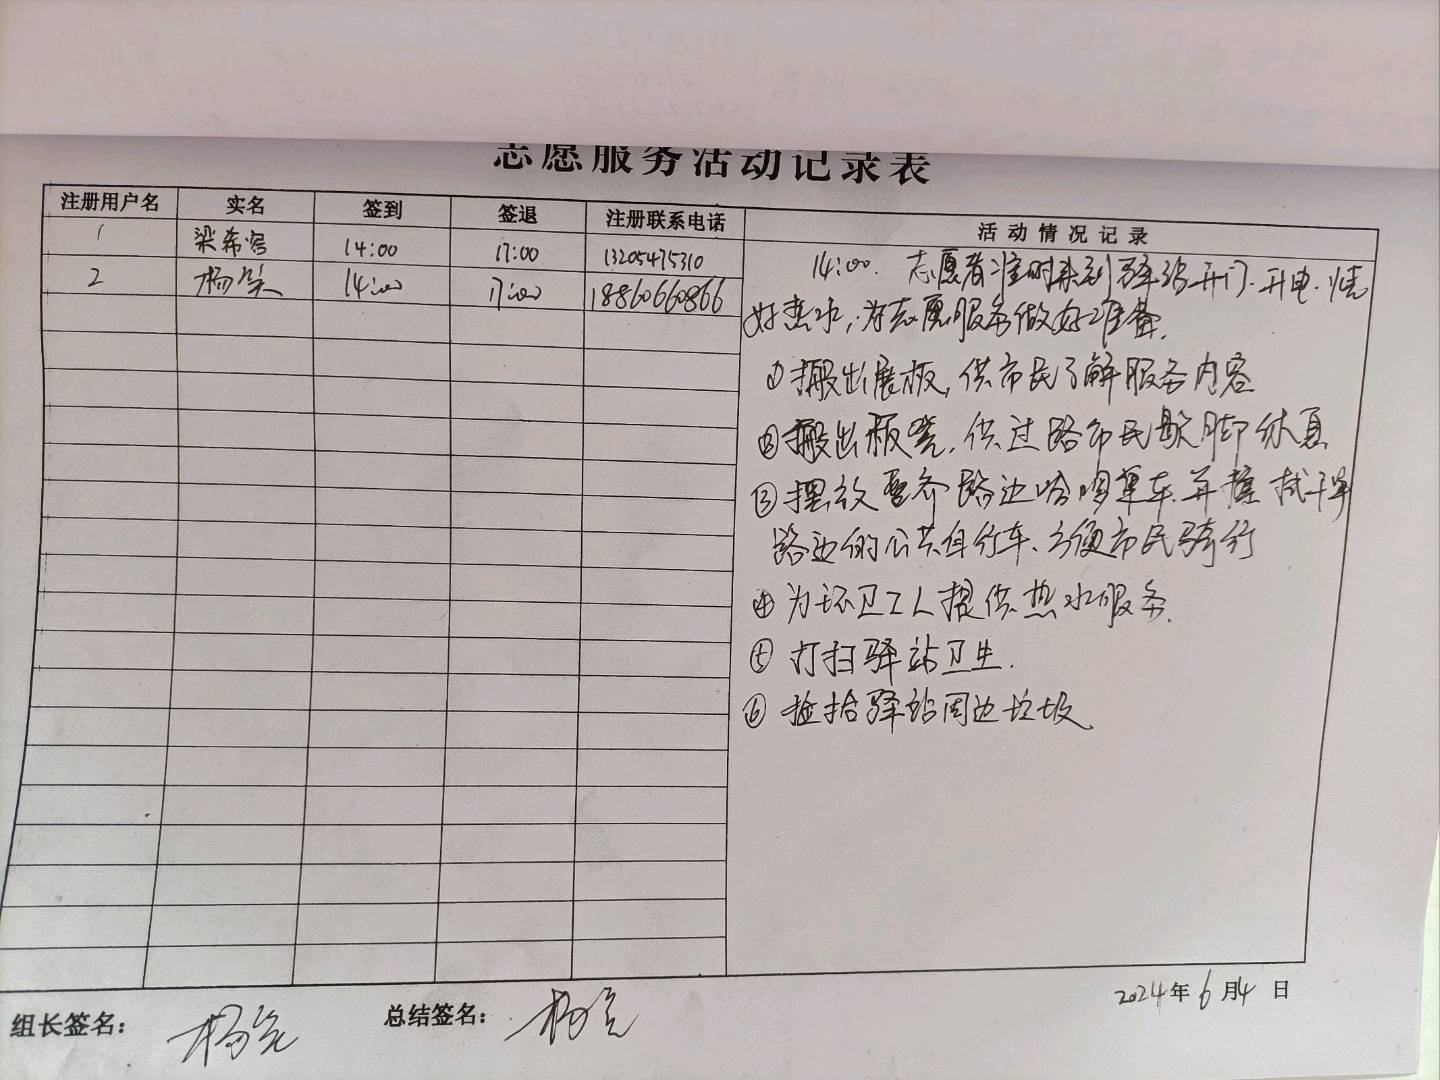 志愿服务活动记录表
注册用户名 实名 签到 签退 注册联系电话 活动情况记录
1 梁希容 14:00 17:00 13205475310
2 杨 14:00 17:00 18860660866
14:00. 志愿者准时来到驿站开门.开电.烧
好热水,为志愿服务做好准备.
①搬出展板,供市民了解服务内容
②搬出板凳,供过路市民歇脚休息
③摆放整齐路边哈啰单车.并擦拭干净
路边的公共自行车、方便市民骑行
④为环卫工人提供热水服务.
⑤打扫驿站卫生.
⑥捡拾驿站周边垃圾
2024年6月4日
组长签名: 杨 总结签名: 杨